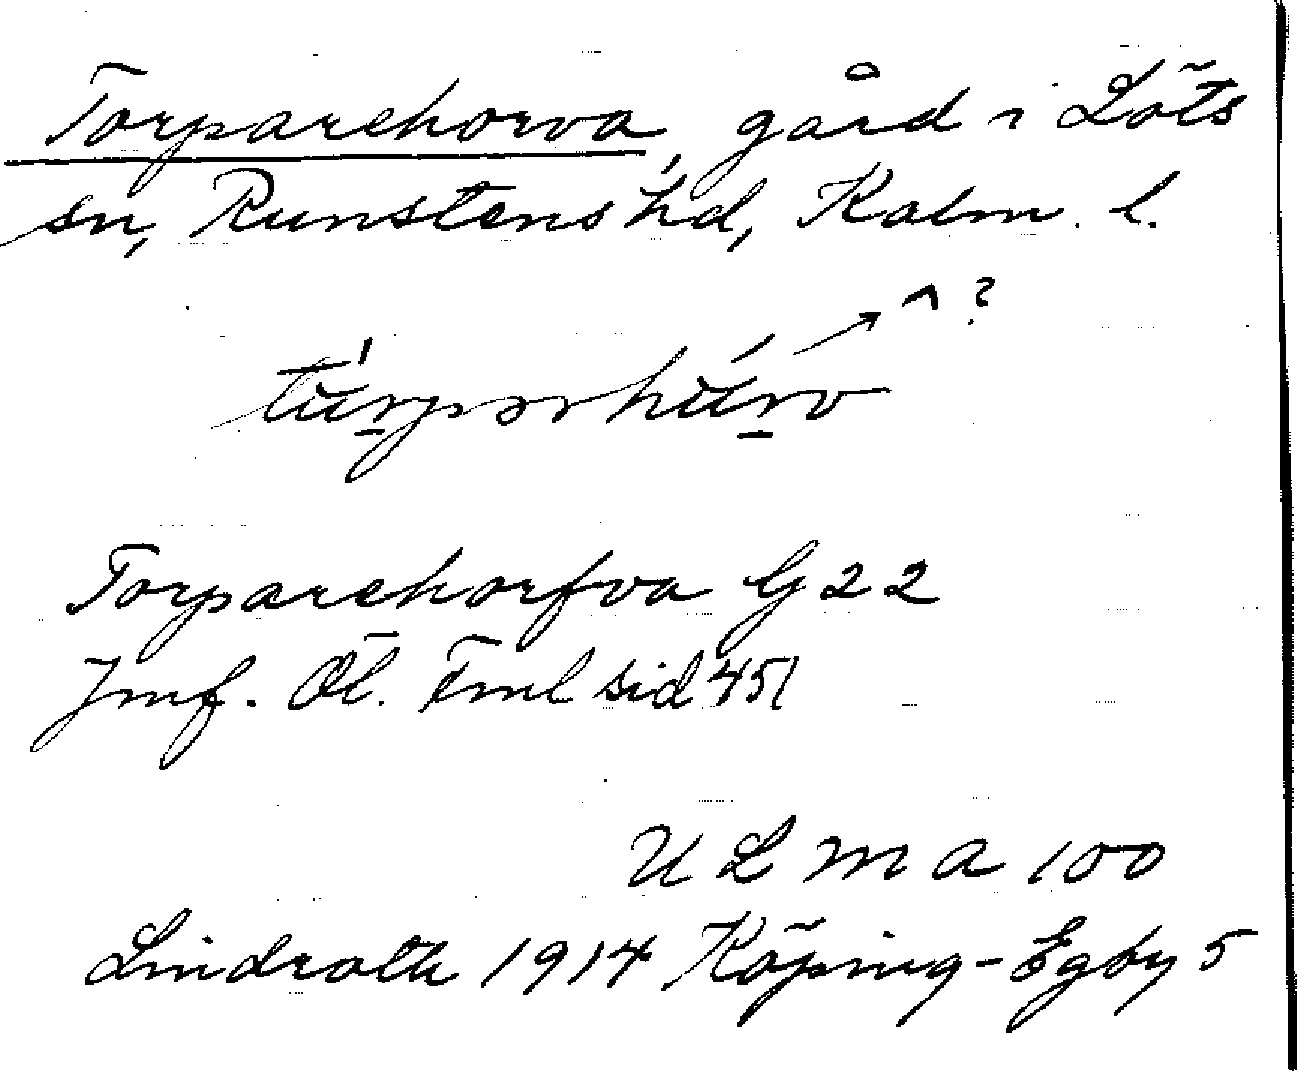 Torparehorva, gård i Löts
sn, Runstens hd, Kalm. l.
^ ?
Torparehorfva G 22
Jmf. Öl. Fml sid 451
U L M A 100
Lindroth 1914 Köping-Egby 5